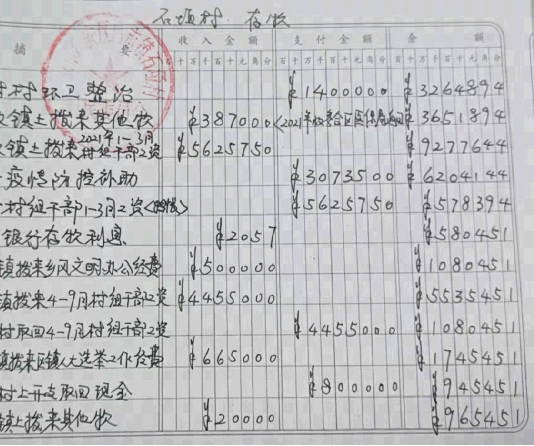 石垭村 存收
摘 要 收入金额 支付金额 余额
千百十万千百十元角分 千百十万千百十元角分 千百十万千百十元角分
村环卫整治 ¥1400000 ¥3264894
镇上拨来其他收 ¥387000 <2021年 ¥3651894
镇上拨来2021年1-3月村组干部工资 ¥5625750 ¥9277644
疫情防控补助 ¥3073500 ¥6204144
村组干部1-3月工资 ¥5625750 ¥578394
银行存收利息 ¥2057 ¥580451
镇拨来乡风文明办公经费 ¥500000 ¥1080451
镇拨来4-9月村组干部工资 ¥4455000 ¥5535451
村取回4-9月村组干部工资 ¥4455000 ¥1080451
镇拨来区镇人大选举工作经费 ¥665000 ¥1745451
村上开支取回现金 ¥800000 ¥945451
镇上拨来其他收 ¥20000 ¥965451